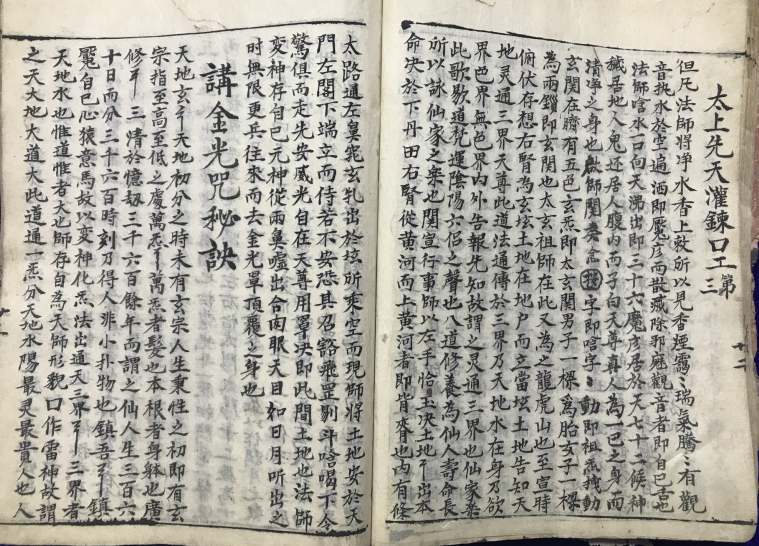 太上先天灌鍊口工第三
但凡法師將淨水香上敕所以見香煙靄〻瑞氣騰〻有觀
音执水於空遍洒即壓彥而散藏除邪廷觀音者即自己舌也
法師唅水一口向天沸出即三十六魔彥居於天七十二候神
穢居地人鬼还居人腹内而子白天尊真人為一巴之身而
清凈之身也啟師関奏炁字即唅字〻動即祖炁拽動
玄関在臍有五邑玄炁即太玄関男子一棵為胎女子一棵
為兩鑽即玄関也太玄祖師在此又為之龍虎山也至宣時
俯伏存想右腎為玄坛土地在地户而立當坛土地告知天
地灵通三界天尊此道法通傳於三界乃天地水在身乃欲
界芭界無邑界内外告報先知故謂之灵通三界也仙家
此歌歇道梵運陰陽六侶之聲也八道修養為仙人壽命長
所以詠仙家之楽也関宣行事師以左手恰玉决土地출出本
命决於下丹田右腎從黄河而上黄河者即皆脊也内有條
太路通左鼻竉玄乳出於坛所乘空而現師将土地安於天
門左閣下端立而侍若不安恐具召豁飛罡剔斗唅喝下令
驚惧而走先安威光自在天尊用罩决即此間土地也法師
变神存自己元神從兩臭噓出合囟眼天目如日月听出之
时無限更兵往來而去金光罩頂覆之身也
講金光咒秘訣
天地玄〻天地初分之時未有玄宗人生秉性之初即有玄
宗指至高至低之處萬炁〻萬炁者髮也本根者身躰也廣
修〻三情於憶劫三千六百餘年而謂之仙人生三百六
十日而分三千六百時刻乃得人非小扑物也鎮吾〻鎮
魘自己心猿意馬故以变神化炁法出通天三界〻三界者
天地水也惟道惟者大也師存自為天師形貌口作雷神故謂
之天大地大道大此道通一炁分天地水陽最灵最貴人也人